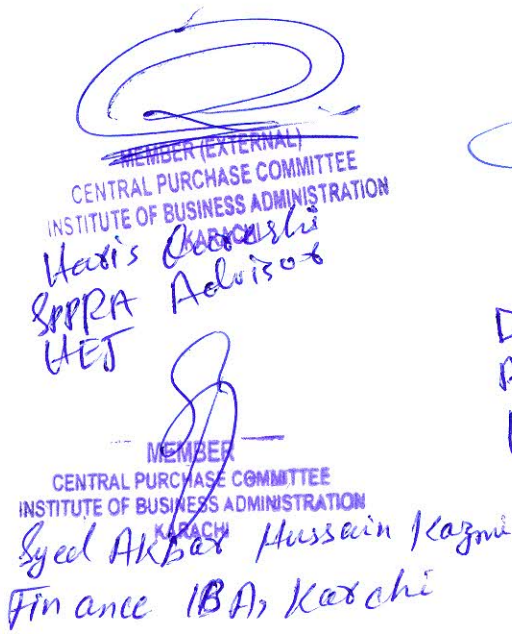 MEMBER (EXTERNAL)
CENTRAL PURCHASE COMMITTEE
INSTITUTE OF BUSINESS ADMINISTRATION
KARACHI
Haris Qureshi
SPPRA Advisor
HEJ
MEMBER
CENTRAL PURCHASE COMMITTEE
INSTITUTE OF BUSINESS ADMINISTRATION
KARACHI
Syed Akbar Hussain Kazmi
Finance IBA, Karchi